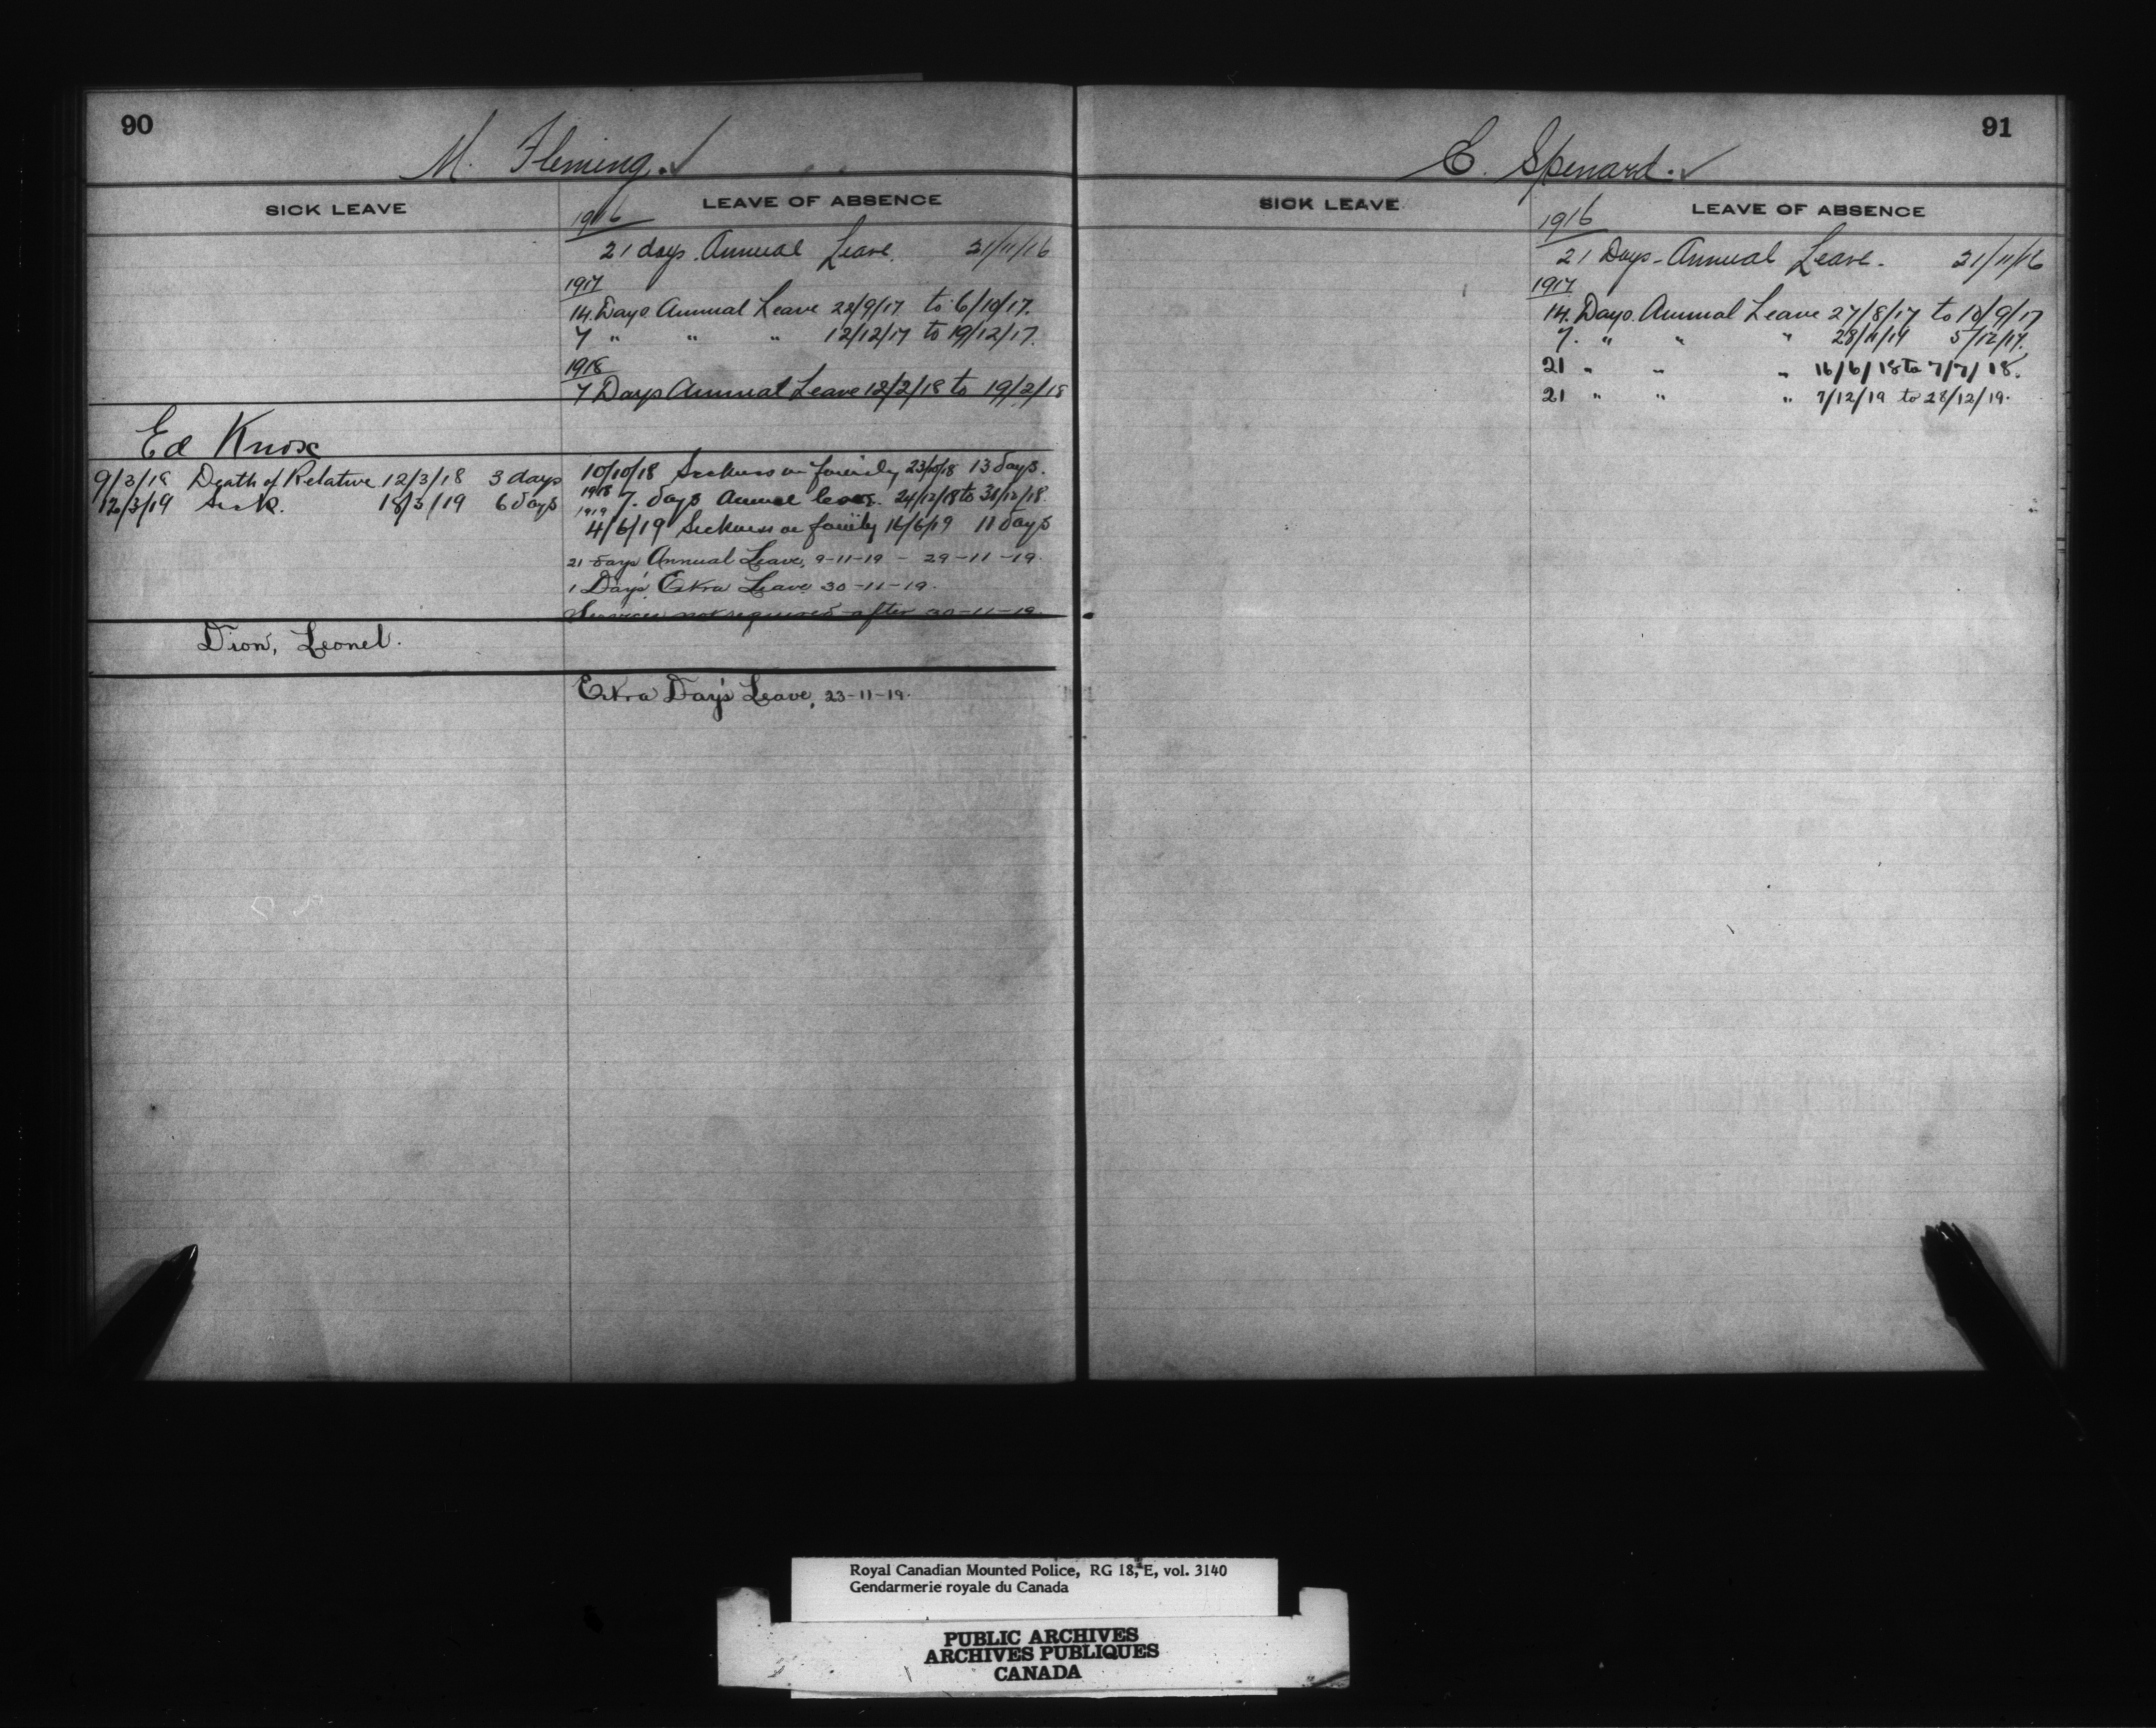 90
M. Fleming.✓
SICK LEAVE
LEAVE OF ABSENCE
1916
21 days. Annual Leave. 21/11/16
1917
14. Days. Annual Leave 22/9/17 to 6/10/17.
7 " " " 12/12/17 to 19/12/17.
1918
7 Days Annual Leave 12/2/18 to 19/2/18
Ed Knox
9/3/18 Death of Relative 12/3/18 3 days
12/3/19 Sick. 18/3/19 6 days
10/10/18 Sickness in family 23/10/18 13 days.
1918 7. days Annual leave. 24/12/18 to 30/12/18.
1919
4/6/19 Sickness in family 16/6/19 11 days
21 days Annual Leave, 9-11-19 - 29-11-19.
1 Day's Extra Leave 30-11-19.
Services not required after 30-11-19.
Dion, Leonel.
Extra Day's Leave, 23-11-19.
91
E. Spenard.✓
SICK LEAVE
LEAVE OF ABSENCE
1916
21 Days - Annual Leave. 21/11/16
1917
14. Days. Annual Leave 27/8/17 to 10/9/17
7. " " " 28/11/17 5/12/17.
21 " " " 16/6/18 to 7/7/18.
21 " " " 7/12/19 to 28/12/19.
Royal Canadian Mounted Police, RG 18, E, vol. 3140
Gendarmerie royale du Canada
PUBLIC ARCHIVES
ARCHIVES PUBLIQUES
CANADA